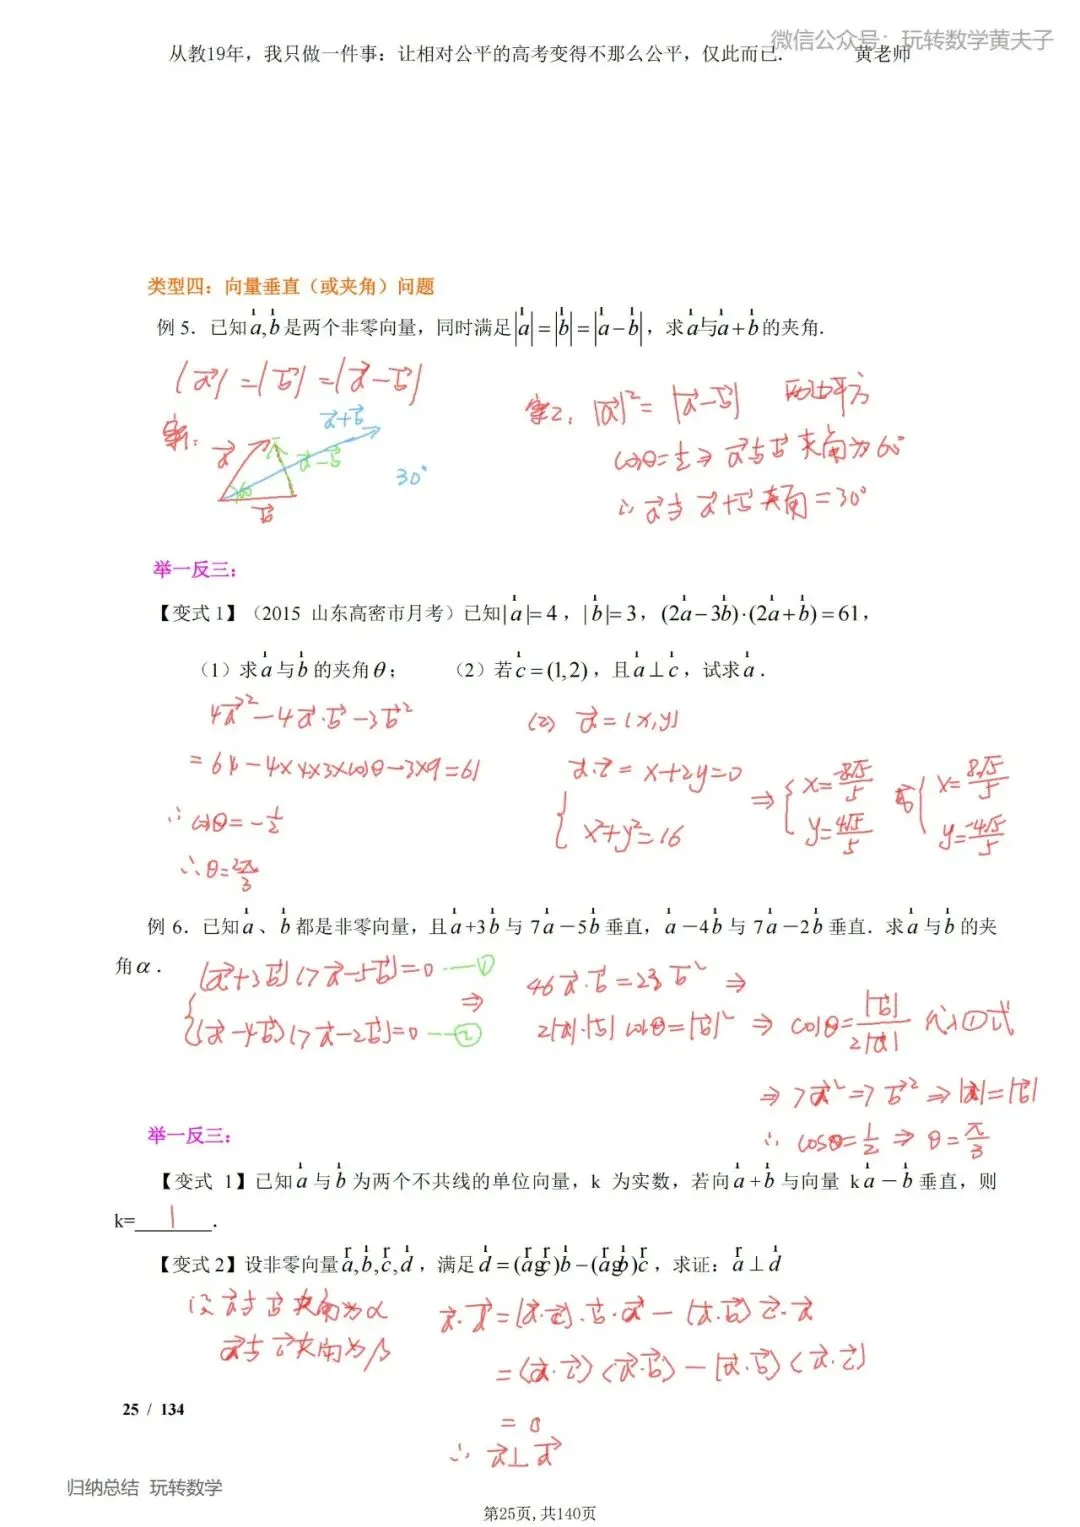 微信公众号：玩转数学黄夫子
从教19年，我只做一件事：让相对公平的高考变得不那么公平，仅此而已． 黄老师
类型四：向量垂直（或夹角）问题
例 5．已知a,b是两个非零向量，同时满足|a|=|b|=|a−b|，求a与a+b的夹角.
|a⃗|=|b⃗|=|a⃗−b⃗|
a⃗+b⃗
案1: a⃗ a⃗−b⃗
60
b⃗
30°
案2: |a⃗|²=|a⃗−b⃗| 两边平方
cosθ=½⇒a⃗与b⃗夹角为60°
∴a⃗与a⃗+b⃗夹角=30°
举一反三：
【变式 1】（2015 山东高密市月考）已知|a|=4，|b|=3，(2a−3b)·(2a+b)=61，
（1）求a与b的夹角θ； （2）若c=(1,2)，且a⊥c，试求a．
4a⃗²−4a⃗·b⃗−3b⃗²
=64−4×4×3×cosθ−3×9=61
∴cosθ=−½
∴θ=2π/3
(2) a⃗=(x,y)
{a⃗·c⃗=x+2y=0
x²+y²=16
⇒{x=-8√5/5
y=4√5/5
或{x=8√5/5
y=-4√5/5
例 6．已知a、b都是非零向量，且a+3b与 7a－5b垂直，a－4b与 7a－2b垂直．求a与b的夹
角α．
{(a⃗+3b⃗)(7a⃗−5b⃗)=0 ---①
(a⃗−4b⃗)(7a⃗−2b⃗)=0 ---②
⇒
46a⃗·b⃗=23b⃗² ⇒
2|a⃗|·|b⃗|cosθ=|b⃗|² ⇒ cosθ=|b⃗|/2|a⃗| 代入①式
⇒7a⃗²=7b⃗²⇒|a⃗|=|b⃗|
∴ cosθ=½⇒θ=π/3
举一反三：
【变式 1】已知a与b为两个不共线的单位向量，k 为实数，若向a+b与向量 ka－b垂直，则
k=1．
【变式 2】设非零向量a,b,c,d，满足d=(agc)b−(agb)c，求证：a⊥d
设a⃗与b⃗夹角为α
a⃗与c⃗夹角为β
a⃗·d⃗=(a⃗·c⃗)·b⃗·a⃗−(a⃗·b⃗)c⃗·a⃗
=(a⃗·c⃗)(a⃗·b⃗)−(a⃗·b⃗)(a⃗·c⃗)
=0
∴a⃗⊥d⃗
25 / 134
归纳总结 玩转数学
第25页,共140页